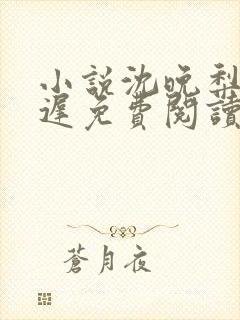 小說沈晚梨
遲免費閱讀
蒼月夜